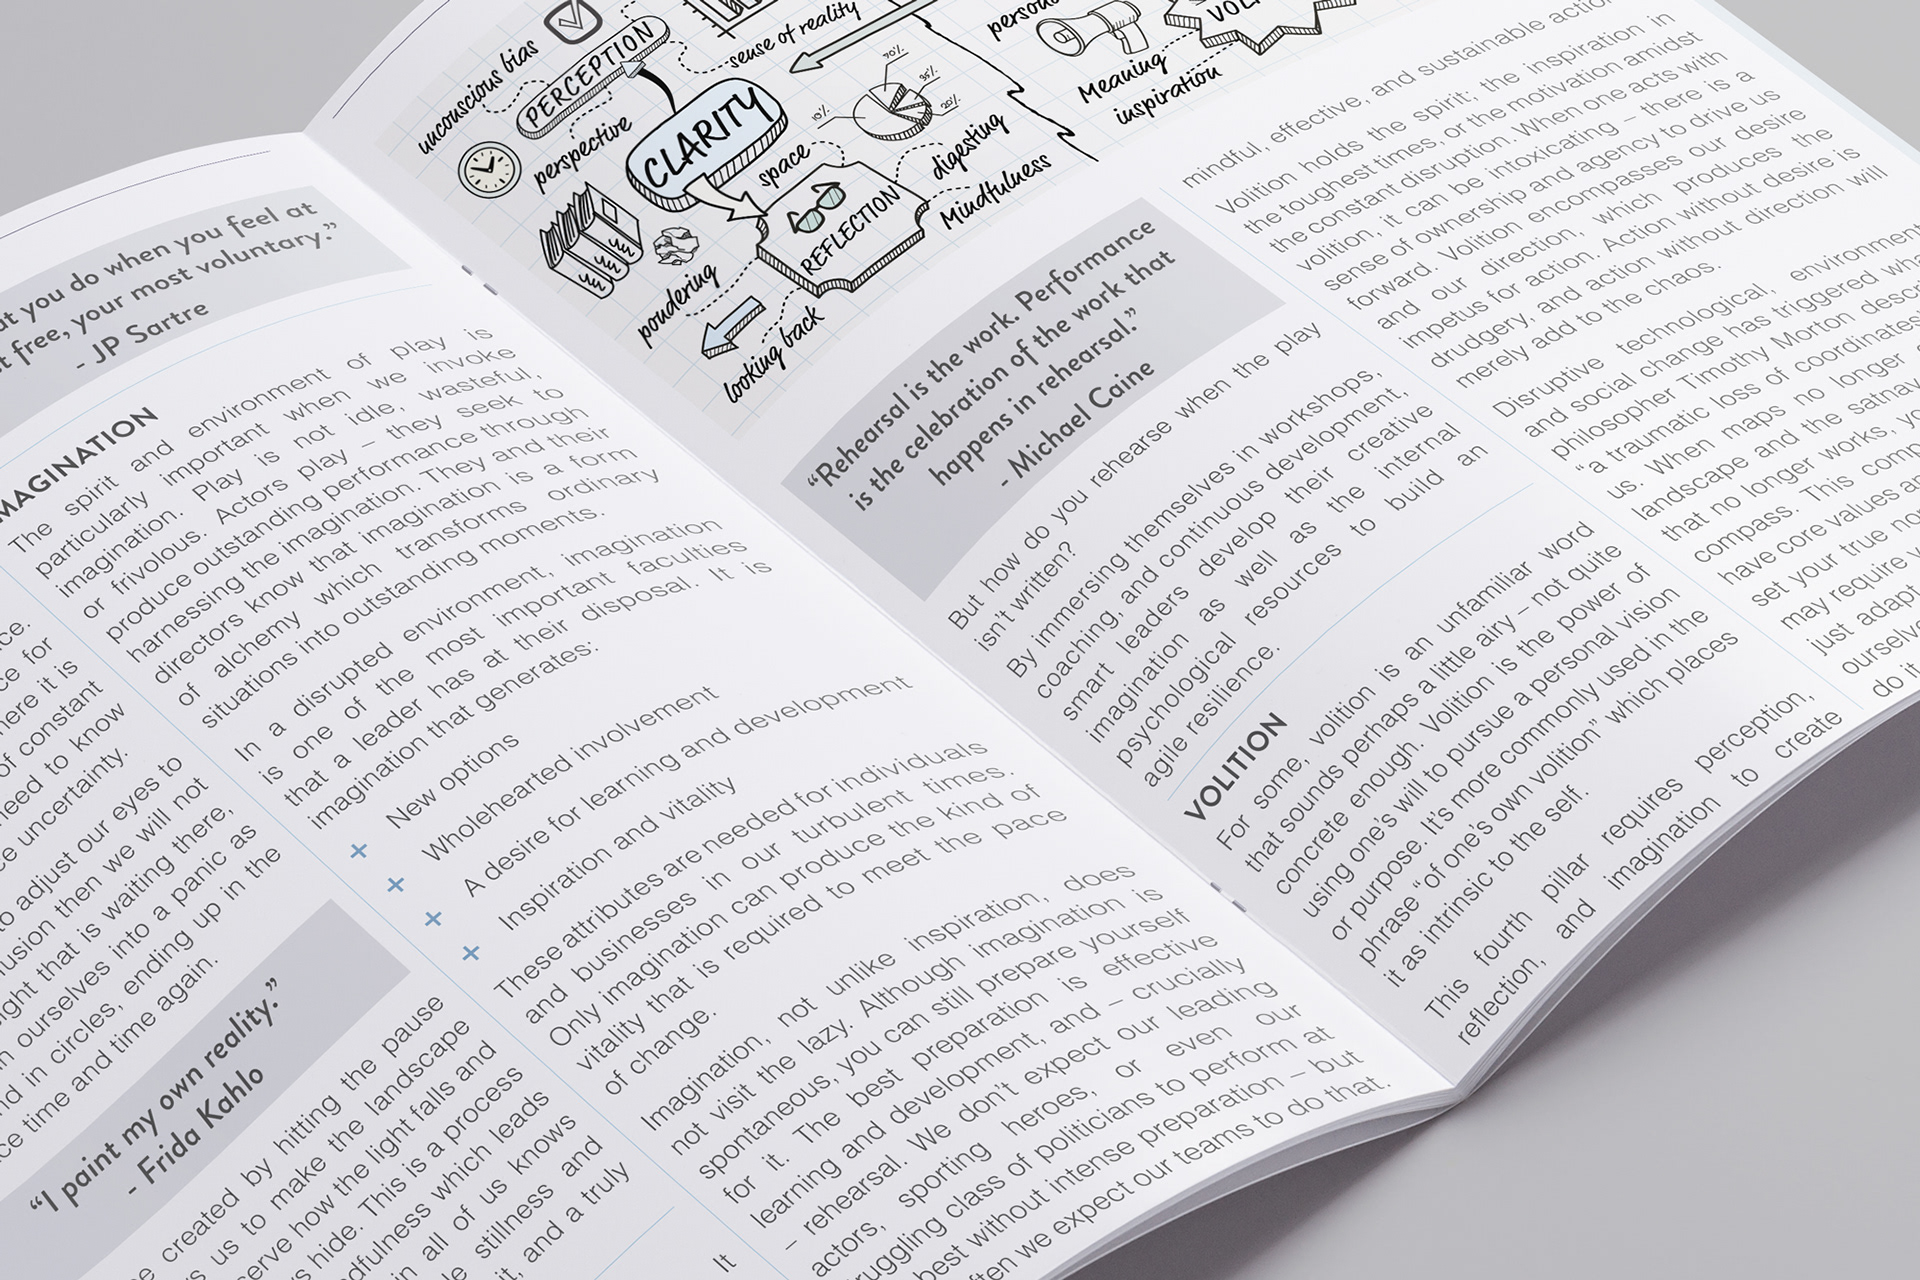 at you do when you feel at
t free, your most voluntary.”
- JP Sartre
ce.
ce for
here it is
of constant
need to know
ce uncertainty.
to adjust our eyes to
usion then we will not
ight that is waiting there,
n ourselves into a panic as
nd in circles, ending up in the
ce time and time again.
“I paint my own reality.”
- Frida Kahlo
created by hitting the pause
us to make the landscape
serve how the light falls and
s hide. This is a process
dfulness which leads
in all of us knows
stillness and
it, and a truly
It
MAGINATION
The spirit and environment of play is
particularly important when we invoke
imagination. Play is not idle, wasteful,
or frivolous. Actors play – they seek to
produce outstanding performance through
harnessing the imagination. They and their
directors know that imagination is a form
of alchemy which transforms ordinary
situations into outstanding moments.
In a disrupted environment, imagination
is one of the most important faculties
that a leader has at their disposal. It is
imagination that generates:
+ New options
+ Wholehearted involvement
+ A desire for learning and development
+ Inspiration and vitality
These attributes are needed for individuals
and businesses in our turbulent times.
Only imagination can produce the kind of
vitality that is required to meet the pace
of change.
Imagination, not unlike inspiration, does
not visit the lazy. Although imagination is
spontaneous, you can still prepare yourself
for it. The best preparation is effective
learning and development, and – crucially
– rehearsal. We don’t expect our leading
actors, sporting heroes, or even our
ruggling class of politicians to perform at
best without intense preparation – but
ften we expect our teams to do that.
unconscious bias
PERCEPTION
sense of reality
perspective
CLARITY
space
70%
35%
20%
10%
digesting
REFLECTION
Mindfulness
poudering
looking back
person
VOL
Meaning
inspiration
“Rehearsal is the work. Performance
is the celebration of the work that
happens in rehearsal.”
- Michael Caine
But how do you rehearse when the play
isn’t written?
By immersing themselves in workshops,
coaching, and continuous development,
smart leaders develop their creative
imagination as well as the internal
psychological resources to build an
agile resilience.
VOLITION
For some, volition is an unfamiliar word
that sounds perhaps a little airy – not quite
concrete enough. Volition is the power of
using one’s will to pursue a personal vision
or purpose. It’s more commonly used in the
phrase “of one’s own volition” which places
it as intrinsic to the self.
This fourth pillar requires perception,
reflection, and imagination to create
mindful, effective, and sustainable action
Volition holds the spirit; the inspiration in
the toughest times, or the motivation amidst
the constant disruption. When one acts with
volition, it can be intoxicating – there is a
sense of ownership and agency to drive us
forward. Volition encompasses our desire
and our direction, which produces the
impetus for action. Action without desire is
drudgery, and action without direction will
merely add to the chaos.
Disruptive technological, environment
and social change has triggered wha
philosopher Timothy Morton descri
“a traumatic loss of coordinates
us. When maps no longer
landscape and the satnav
that no longer works, yo
compass. This comp
have core values an
set your true no
may require y
just adapt
ourselve
do it